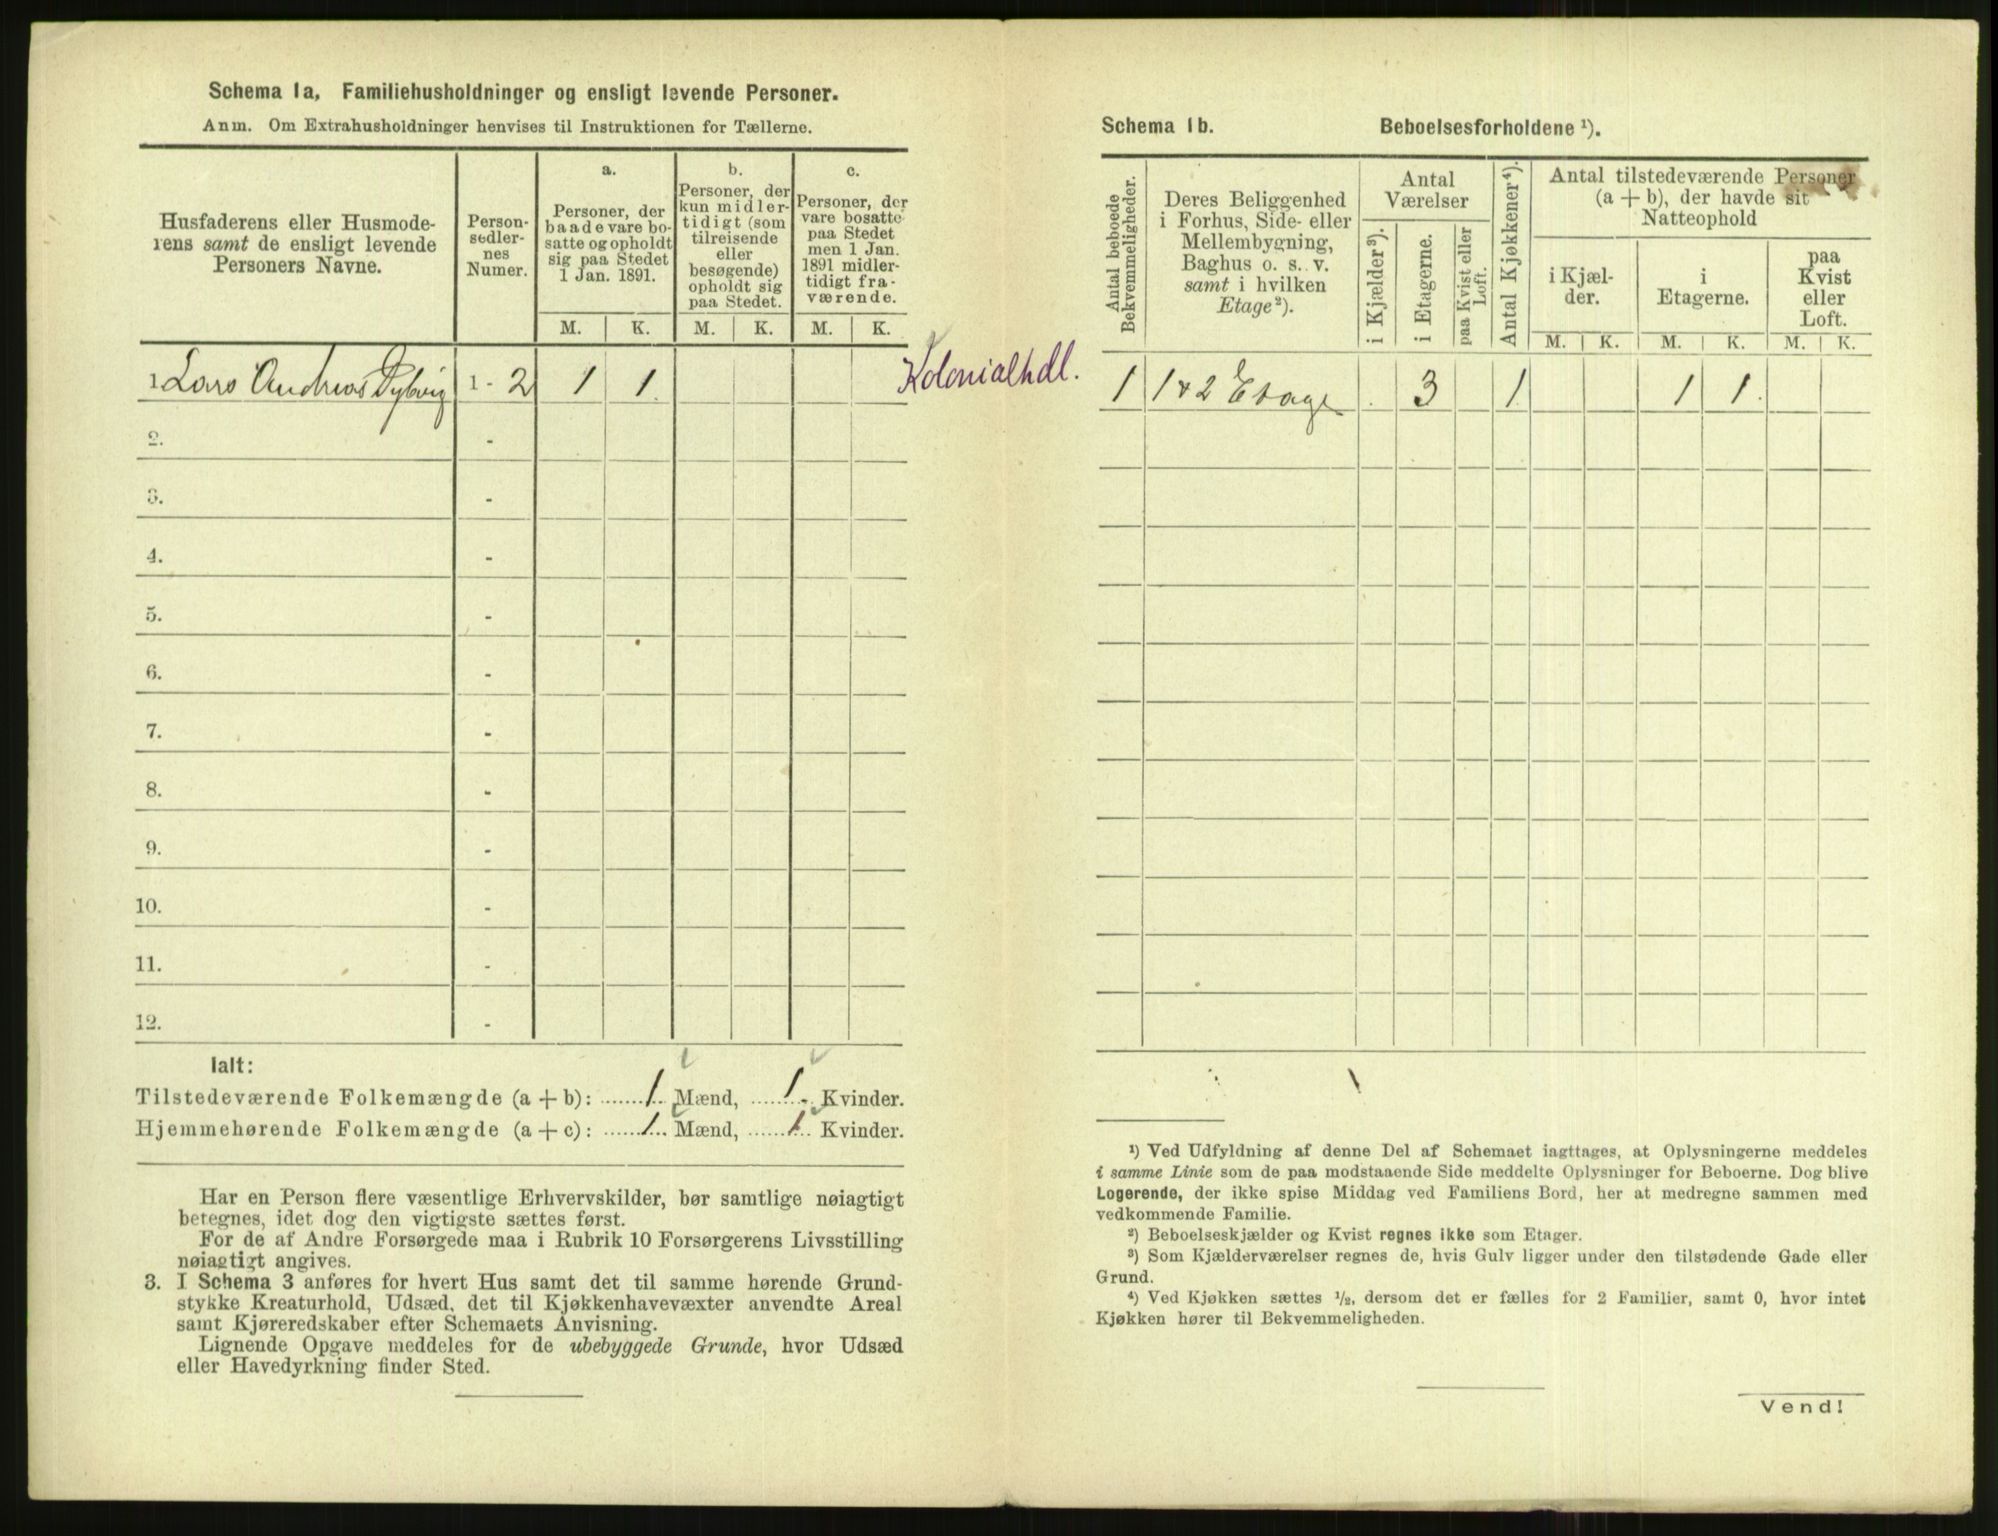 Schema 1a, Familiehusholdninger og ensligt levende Personer.
Anm. Om Extrahusholdninger henvises til Instruktionen for Tællerne.
Husfaderens eller Husmode-
rens samt de ensligt levende
Personers Navne.
Person-
sedler-
nes
Numer.
a.
Personer, der
baade vare bo-
satte og opholdt
sig paa Stedet
1 Jan. 1891.
M. K.
b.
Personer, der
kun midler-
tidigt (som
tilreisende
eller
besøgende)
opholdt sig
paa Stedet.
M. K.
c.
Personer, der
vare bosatte
paa Stedet
men 1 Jan.
1891 midler-
tidigt fra-
værende.
M. K.
1 Lars Andreas Dybvig 1 - 2 1 1
Kolonialhdl.
2. -
3. -
4. -
5. -
6. -
7. -
8. -
9. -
10. -
11. -
12. -
Ialt:
Tilstedeværende Folkemængde (a + b): 1 Mænd, 1 Kvinder.
Hjemmehørende Folkemængde (a + c): 1 Mænd, 1 Kvinder.
Har en Person flere væsentlige Erhvervskilder, bør samtlige nøiagtigt
betegnes, idet dog den vigtigste sættes først.
For de af Andre Forsørgede maa i Rubrik 10 Forsørgerens Livsstilling
nøiagtigt angives.
3. I Schema 3 anføres for hvert Hus samt det til samme hørende Grund-
stykke Kreaturhold, Udsæd, det til Kjøkkenhavevæxter anvendte Areal
samt Kjøreredskaber efter Schemaets Anvisning.
Lignende Opgave meddeles for de ubebyggede Grunde, hvor Udsæd
eller Havedyrkning finder Sted.
Schema 1b. Beboelsesforholdene ¹).
Antal beboede
Bekvemmeligheder.
Deres Beliggenhed
i Forhus, Side- eller
Mellembygning,
Baghus o. s. v.
samt i hvilken
Etage²).
Antal
Værelser
i Kjælder³).
i Etagerne.
paa Kvist eller
Loft.
Antal Kjøkkener⁴).
Antal tilstedeværende Personer
(a + b), der havde sit
Natteophold
i Kjæl-
der.
M. K.
i
Etagerne.
M. K.
paa
Kvist
eller
Loft.
M. K.
1 1 & 2 Etage 3 1 1 1
¹) Ved Udfyldning af denne Del af Schemaet iagttages, at Oplysningerne meddeles
i samme Linie som de paa modstaaende Side meddelte Oplysninger for Beboerne. Dog blive
Logerende, der ikke spise Middag ved Familiens Bord, her at medregne sammen med
vedkommende Familie.
²) Beboelseskjælder og Kvist regnes ikke som Etager.
³) Som Kjælderværelser regnes de, hvis Gulv ligger under den tilstødende Gade eller
Grund.
⁴) Ved Kjøkken sættes ¹/₂, dersom det er fælles for 2 Familier, samt 0, hvor intet
Kjøkken hører til Bekvemmeligheden.
Vend!